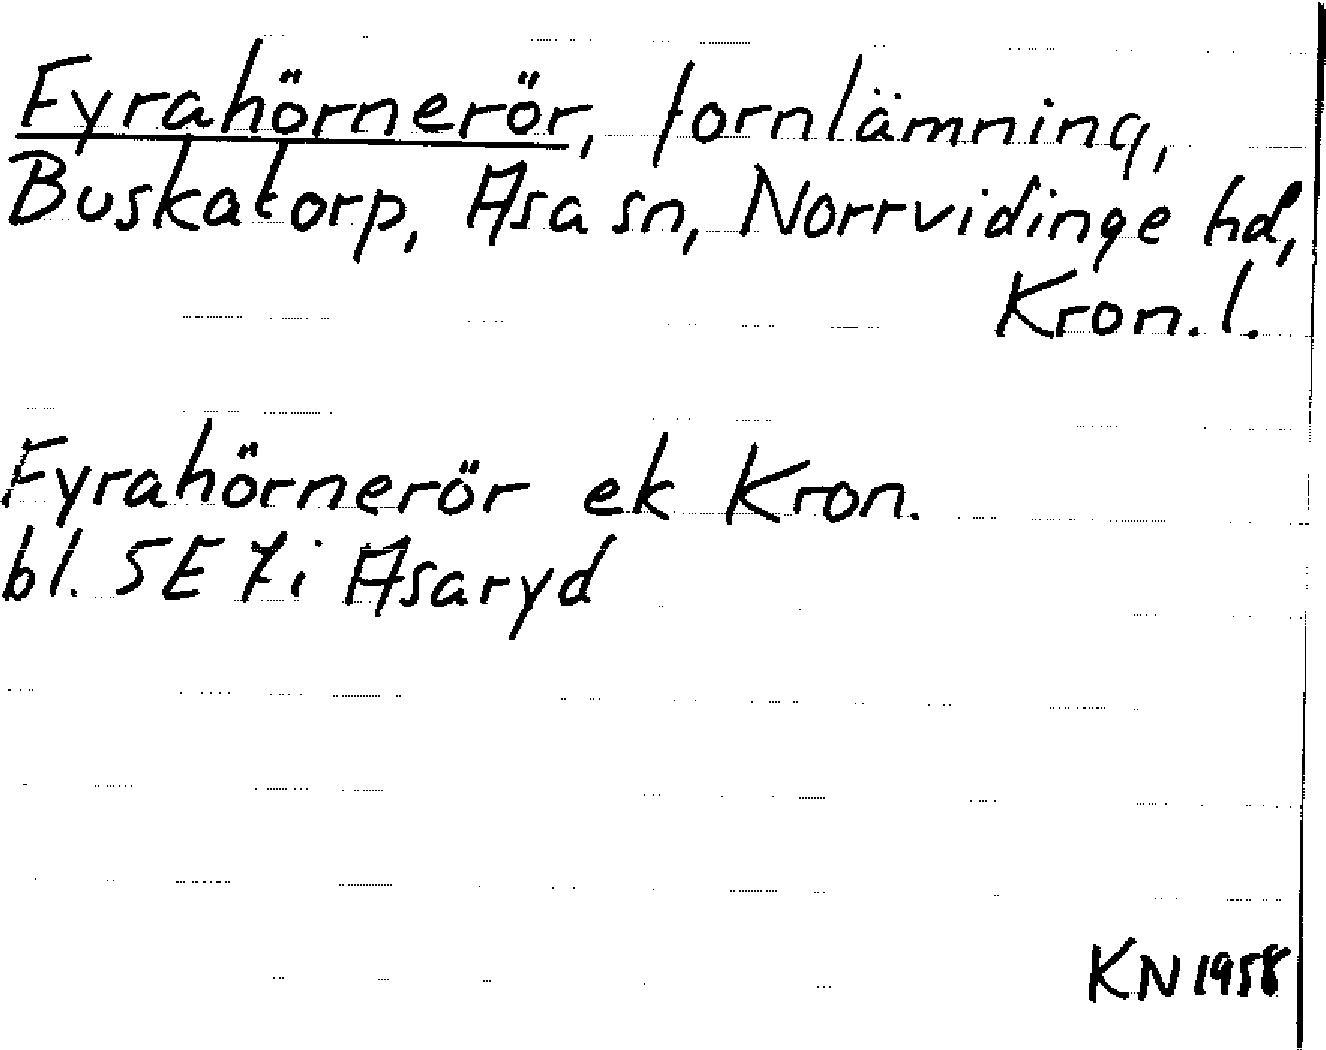 Fyrahörnerör, fornlämning,
Buskatorp, Asa sn, Norrvidinge hd,
Kron. l.
Fyrahörnerör ek Kron.
bl. SE 7 i Asaryd
KN 1958